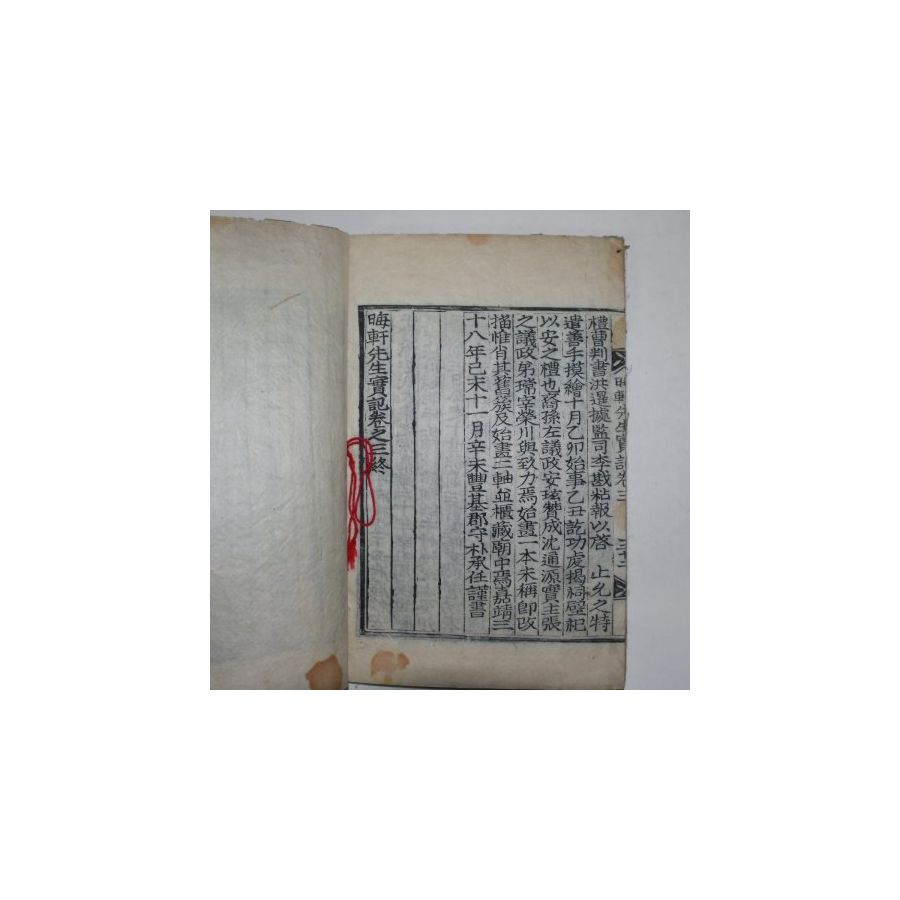 禮曹判書洪暹據監司李戡粘報以啓 上允之特
遣善手摸繪十月乙卯始事乙丑訖功虔揭祠壁祀
以安之禮也裔孫左議政安玹贊成沈通源實主張
之議政弟瑺宰榮川與致力焉始畫一本未稱卽改
描惟肖其舊簇及始畫二軸並櫃藏廟中焉嘉靖三
十八年己未十一月辛未豊基郡守朴承任謹書
晦軒先生實記卷之三終
晦軒先生實記卷三